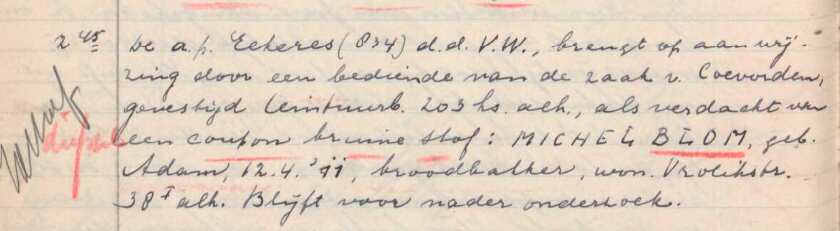 2 45 De a.p. Eckeres (834) d.d. V.W., brengt op aanwij-
zing door een bediende van de zaak v. Coevorden,
gevestigd Ceintuurb. 203 hs. alh., als verdacht van
diefstal een coupon bruine stof: MICHEL BLOM, geb.
Adam, 12.4.'91, broodbakker, won. Vrolikstr.
38 I alh. Blijft voor nader onderzoek.